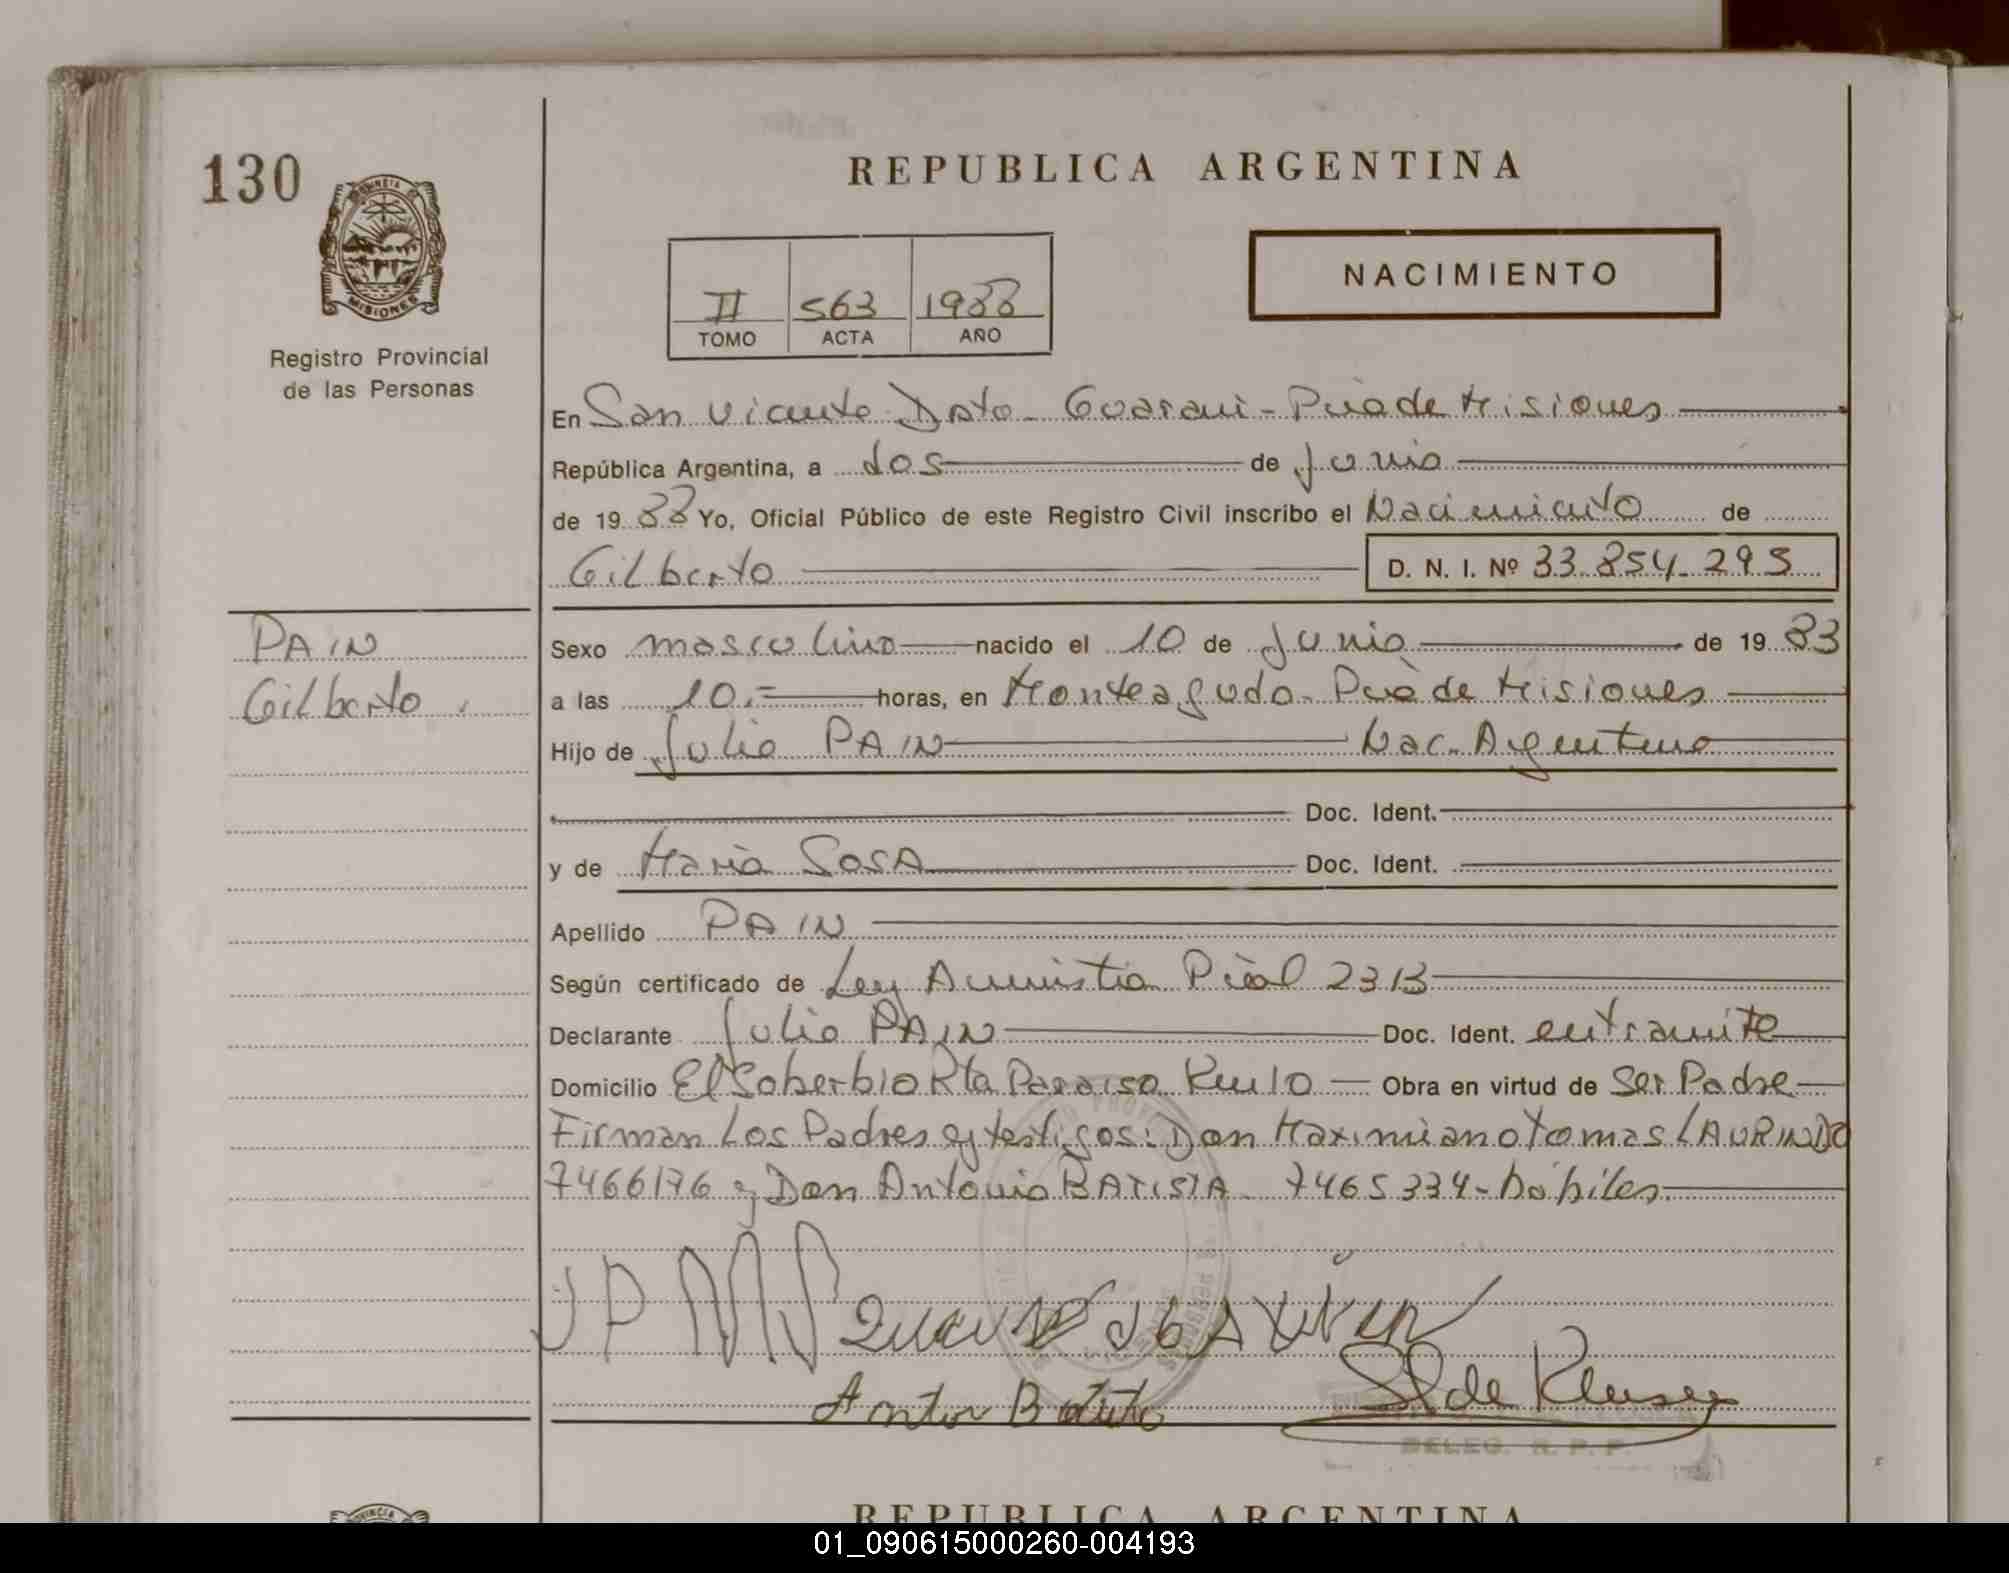 130
REPUBLICA ARGENTINA
PROVINCIA
MISIONES
Registro Provincial
de las Personas
NACIMIENTO
II 563 1988
TOMO ACTA AÑO
En San Vicente Dpto. Guarani - Pcia de Misiones
República Argentina, a dos de Junio
de 19 88 Yo, Oficial Público de este Registro Civil inscribo el Nacimiento de
Gilberto D. N. I. Nº 33.854.295
PAIN
Gilberto.
Sexo masculino nacido el 10 de Junio de 19 83
a las 10.= horas, en Monteagudo - Pcia de Misiones
Hijo de Julio PAIN Nac. Argentino
Doc. Ident.
y de Maria SOSA Doc. Ident.
Apellido PAIN
Según certificado de Ley Amnistia Pcial 2313
Declarante Julio PAIN Doc. Ident. en tramite
Domicilio El Soberbio Rta Paraiso Km 10 Obra en virtud de Ser Padre
Firman Los Padres y testigos: Don Maximiano tomas LAURINDO
7466176 y Don Antonio BATISTA 7465334 - hábiles.
JP MS
Anton B
de
DELEG. R. P. P.
REPUBLICA ARGENTINA
01_090615000260-004193